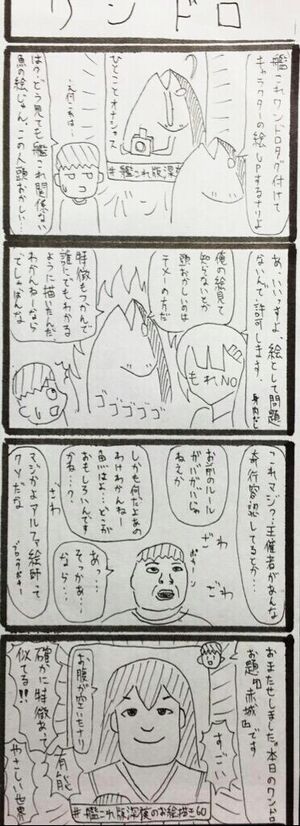 ワンドロ
艦これワンドロタグ付けて
キャラクターの絵UPするナリよ
ひとことオナシャス
#艦これ版深
バン
え、何これ…
は?どう見ても艦これ関係ない
魚の絵じゃん、この人頭おかしい…
あ、いいっすよ、絵として問題
ないんで、許可します。
身内だと
もれNO
俺の絵見て
知らないとか
頭おかしいのは
テメーの方だ
ゴゴゴゴゴ
特徴もつかんで
誰にでもわかる
ように描いたんだ
わかんねーなら
でしゃばんな
これマジっ?主催者があんな
奇行容認してるとか…
ざわ
お前のルール
ガバガバじゃ
ねえか
ざわ
しかも何だよあの
わけわかんねー
魚はよ…どこが
おもしろいんです
かね…?
ざわ
あっ…
そっかぁ…
なら…
マジかよアルファ絵師って
クソだな
お待たせしました。本日のワンドロ
お題『赤城』です
すごーい
お腹が空いたナリ
#艦これ版深夜のお絵描き60
有能
確かに特徴あって
似てる!!
やさしい世界